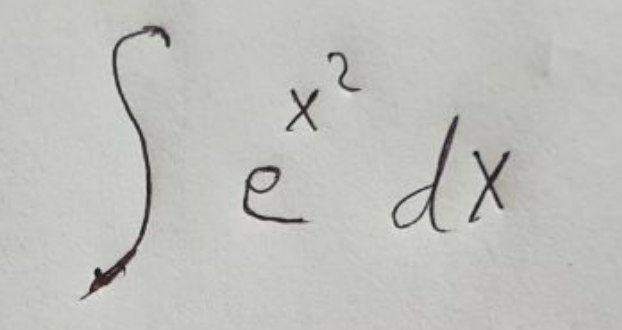 ∫ e^{x^2} dx